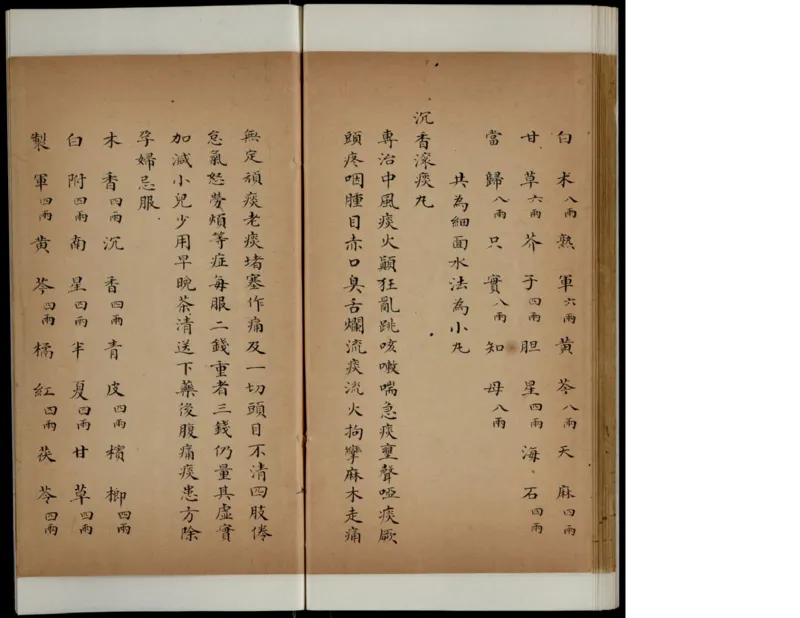 白朮八兩熟軍六兩黃芩八兩天麻四兩
甘草六兩芥子四兩胆星四兩海石四兩
當歸八兩只實八兩知母八兩
共為細面水法為小丸
沉香滚痰丸
專治中風痰火顚狂亂跳咳嗽喘急痰壅聲啞痰厥
頭疼咽腫目赤口臭舌爛流痰流火拘攣麻木走痛
無定頑痰老痰堵塞作痛及一切頭目不清四肢倦
怠氣怒勞煩等症每服二錢重者三錢仍量其虛實
加減小兒少用早晚茶清送下藥後腹痛痰患方除
孕婦忌服
木香四兩沉香四兩青皮四兩檳榔四兩
白附四兩南星四兩半夏四兩甘草四兩
製軍四兩黃芩四兩橘紅四兩茯苓四兩